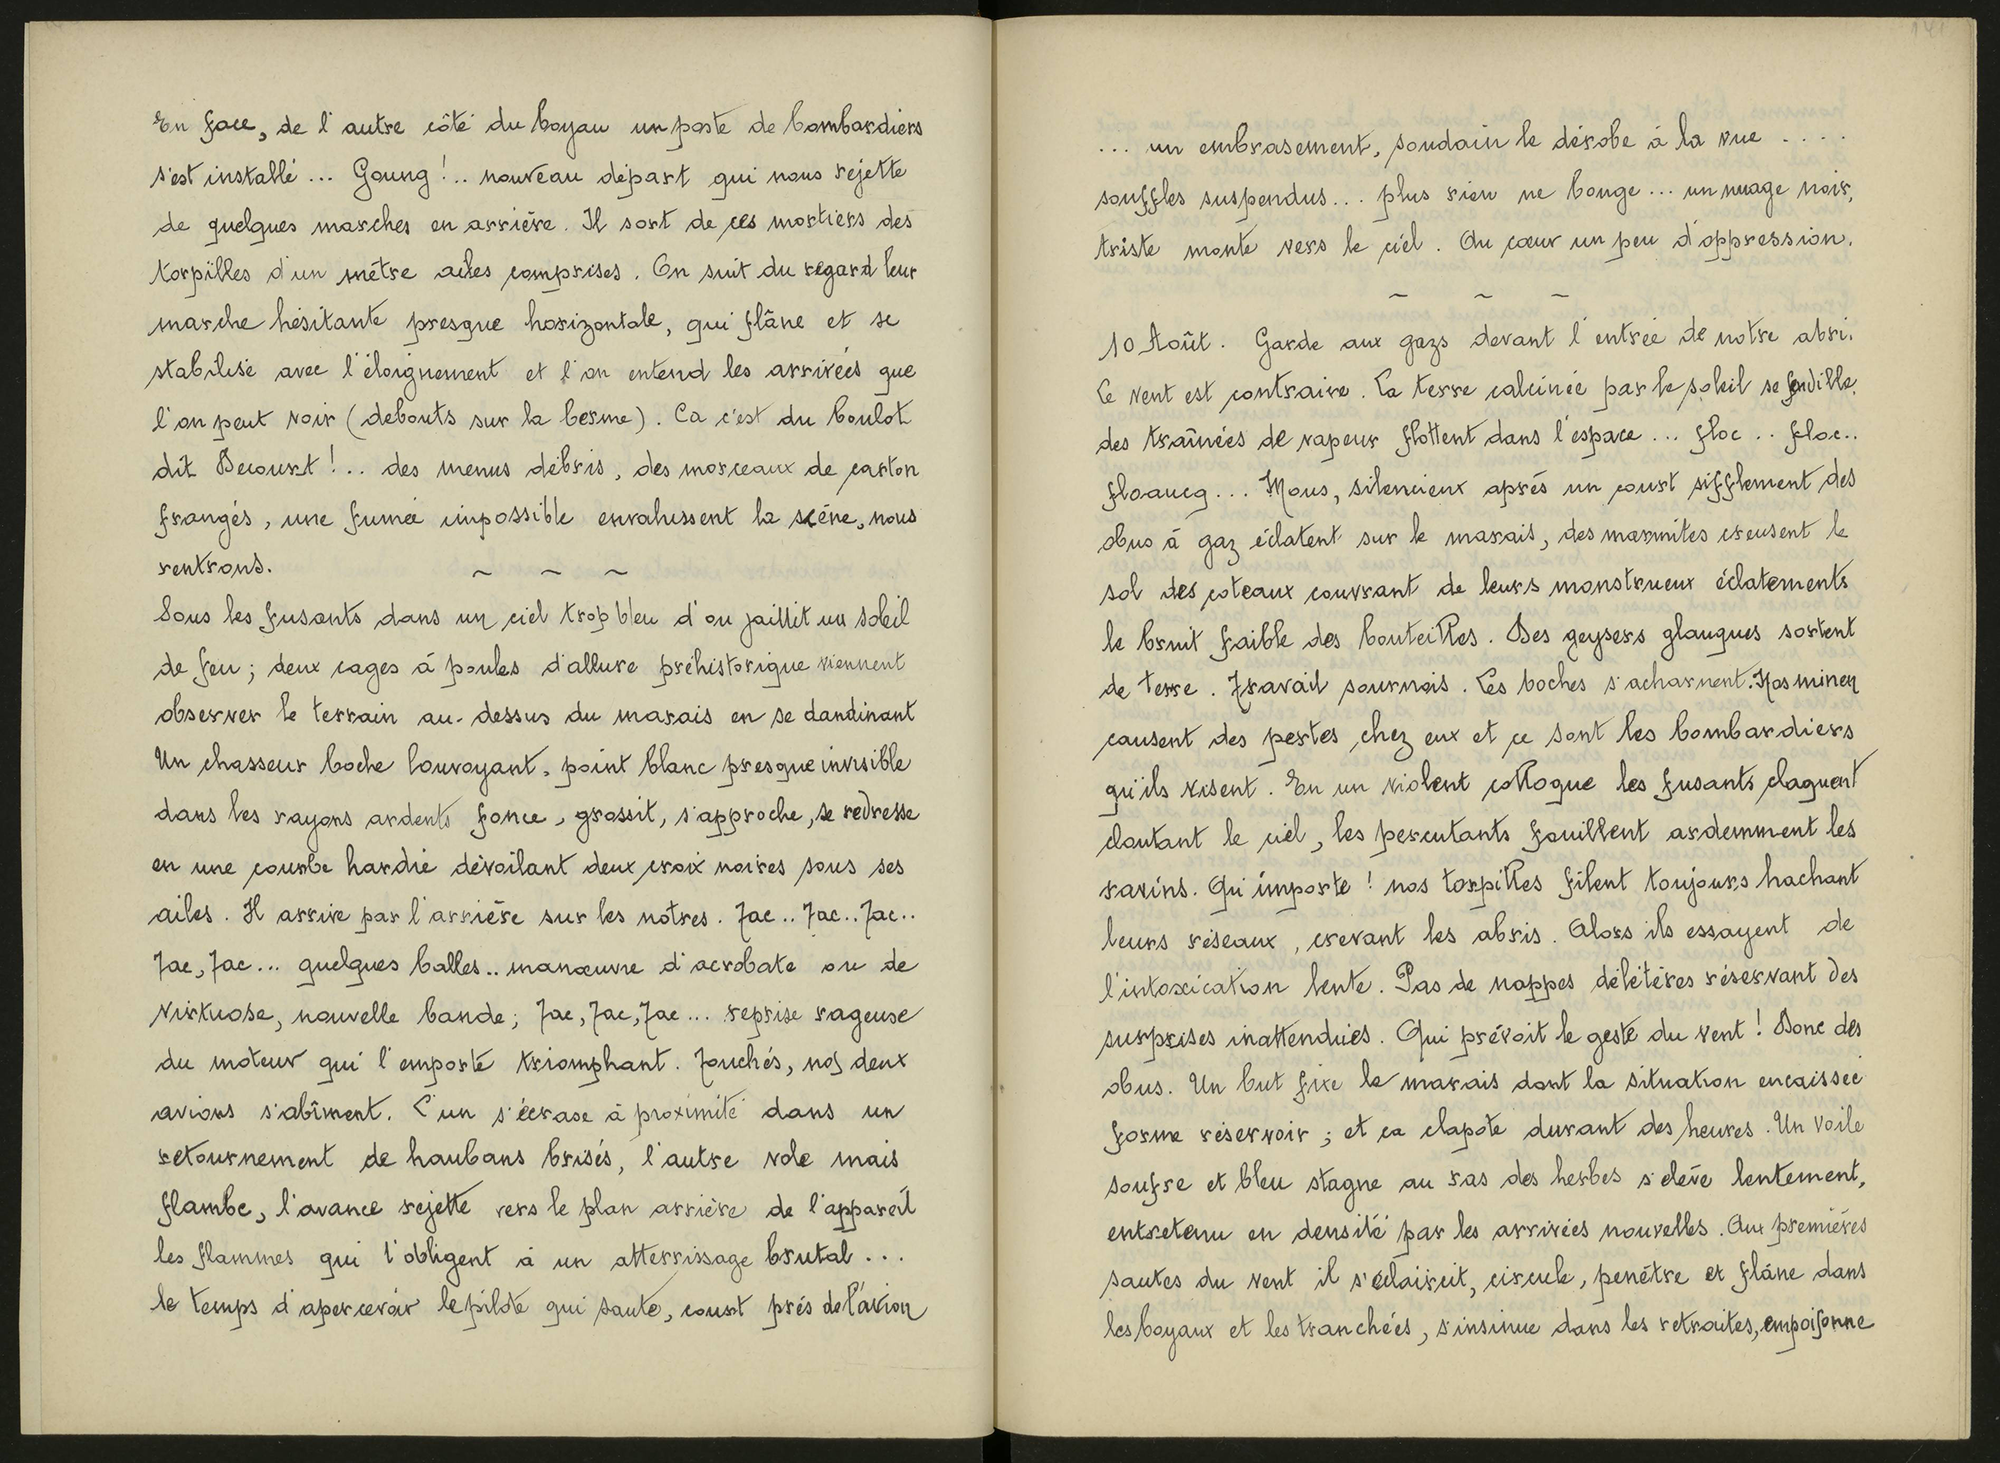 En face, de l'autre côté du boyau un poste de bombardiers
s'est installé ... Goung !.. nouveau départ qui nous rejette
de quelques marches en arrière. Il sort de ces mortiers des
torpilles d'un mètre ailes comprises. On suit du regard leur
marche hésitante presque horizontale, qui flâne et se
stabilise avec l'éloignement et l'on entend les arrivées que
l'on peut voir (debouts sur la berme). Ca c'est du boulot
dit Decourt !.. des menus débris, des morceaux de carton
frangés, une fumée impossible envahissent la scène, nous
rentrons.
~ ~ ~
Sous les fusants dans un ciel trop bleu d'ou jaillit un soleil
de feu ; deux cages à poules d'allure préhistorique viennent
observer le terrain au-dessus du marais en se dandinant
Un chasseur boche louvoyant, point blanc presque invisible
dans les rayons ardents fonce, grossit, s'approche, se redresse
en une courbe hardie dévoilant deux croix noires sous ses
ailes. Il arrive par l'arrière sur les notres. Tac.. Tac.. Tac..
Tac, Tac ... quelques balles.. manœuvre d'acrobate ou de
virtuose, nouvelle bande ; Tac, Tac, Tac ... reprise rageuse
du moteur qui l'emporte triomphant. Touchés, nos deux
avions s'abîment. L'un s'écrase à proximité dans un
retournement de haubans brisés, l'autre vole mais
flambe, l'avance rejette vers le plan arrière de l'appareil
les flammes qui l'obligent à un atterrissage brutal ...
le temps d'apercevoir le pilote qui saute, court près de l'avion
141
... un embrasement, soudain le dérobe à la vue ....
souffles suspendus... plus rien ne bouge ... un nuage noir,
triste monte vers le ciel. Au cœur un peu d'oppression.
~ ~ ~
10 Août. Garde aux gazs devant l'entrée de notre abri.
Le vent est contraire. La terre calcinée par le soleil se fendille.
des traînées de vapeur flottent dans l'espace ... floc .. floc..
floaucg ... Mous, silencieux après un court sifflement des
obus à gaz éclatent sur le marais, des marmites creusent le
sol des coteaux couvrant de leurs monstrueux éclatements
le bruit faible des bouteilles. Des geysers glauques sortent
de terre. Travail sournois. Les boches s'acharnent. Nos minen
causent des pertes chez eux et ce sont les bombardiers
qu'ils visent. En un violent colloque les fusants claquent
cloutant le ciel, les percutants fouillent ardemment les
ravins. Qu'importe ! nos torpilles filent toujours hachant
leurs réseaux, crevant les abris. Alors ils essayent de
l'intoxication lente. Pas de nappes délétères réservant des
surprises inattendues. Qui prévoit le geste du vent ! Donc des
obus. Un but fixe le marais dont la situation encaissée
forme réservoir ; et ca clapote durant des heures. Un voile
soufre et bleu stagne au ras des herbes s'élève lentement,
entretenu en densité par les arrivées nouvelles. Aux premières
sautes du vent il s'éclaircit, circule, penètre et flâne dans
les boyaux et les tranchées, s'insinue dans les retraites, empoisonne